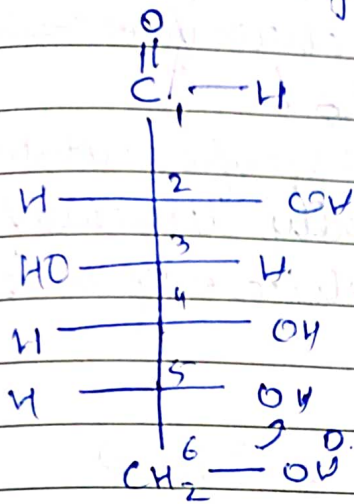 O
||
C1—H
H 2 OH
HO 3 H
H 4 OH
H 5 OH
CH2 6 — OH D.